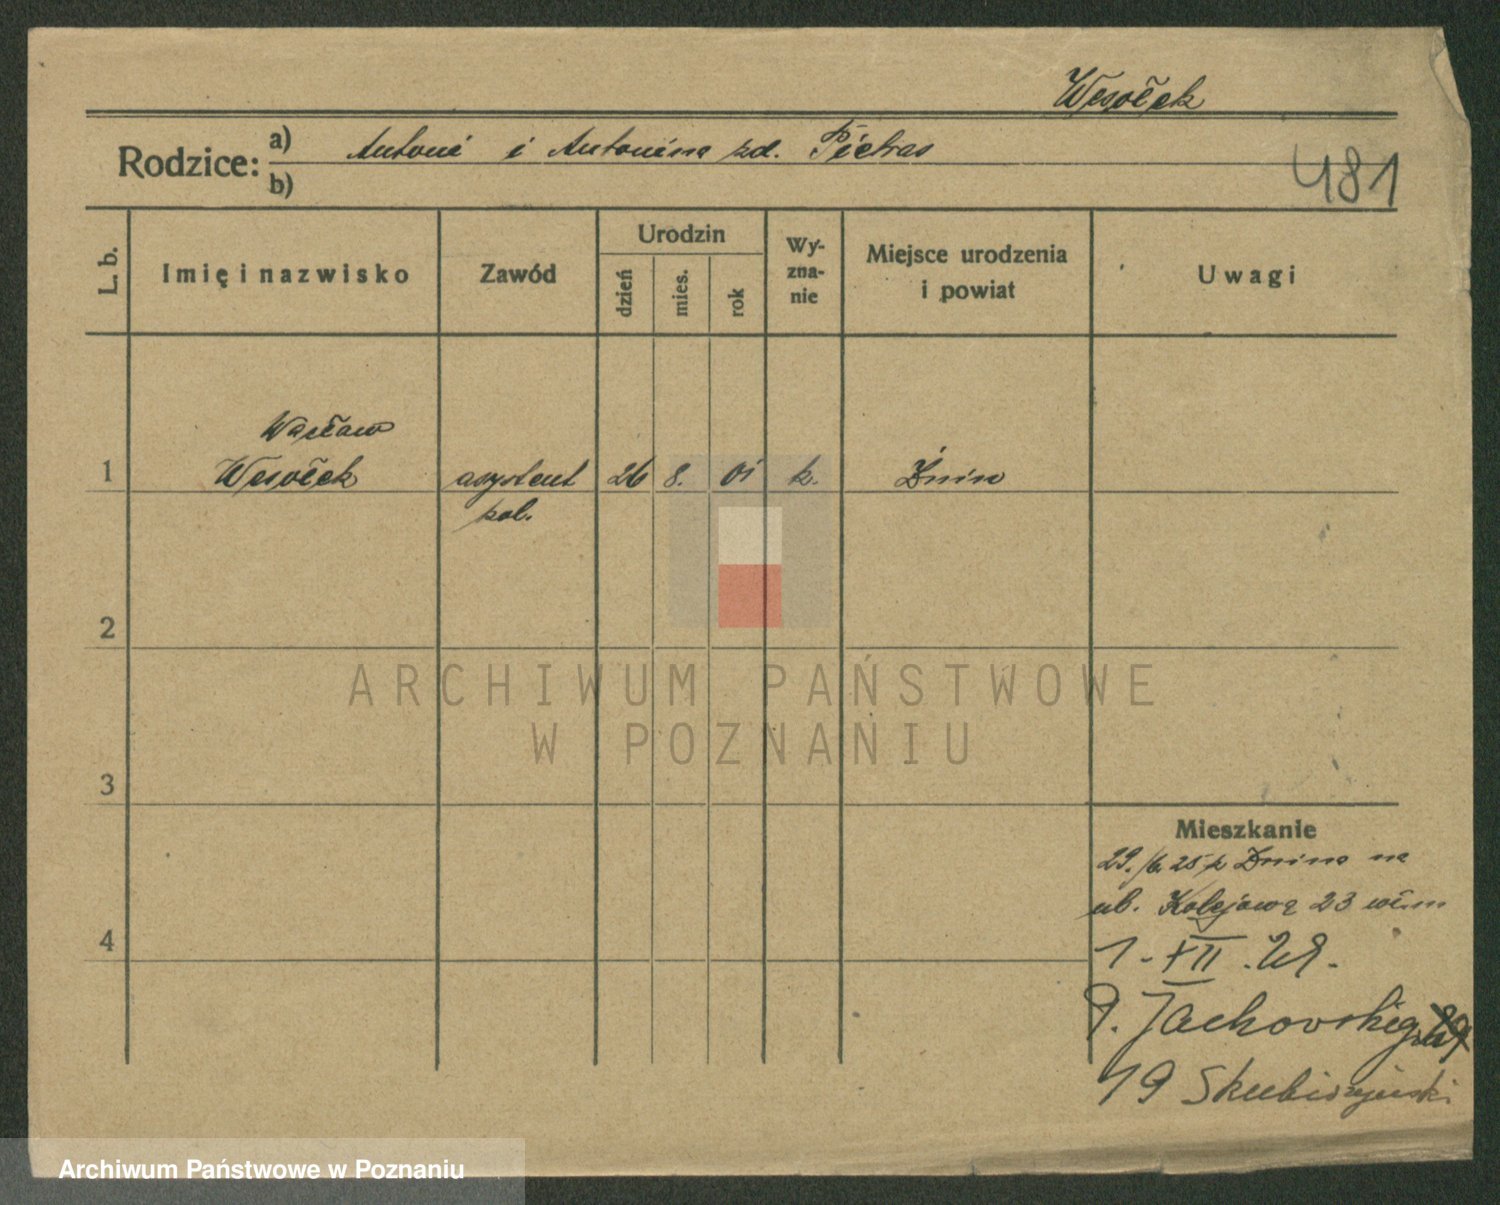 Wesołek
Rodzice: a) Antoni i Antonina zd. Pietras
b)
481
L. b.
Imię i nazwisko
Zawód
Urodzin
dzień
mies.
rok
Wy-
zna-
nie
Miejsce urodzenia
i powiat
Uwagi
Wacław
1 Wesołek asystent 26 8. 01 k. Żnin
kol.
2
ARCHIWUM PAŃSTWOWE
W POZNANIU
3
Mieszkanie
29./6. 25 z Żnina na
ul. Kolejową 23
4
1. XII. 29.
9. Jachovskiego
19
Archiwum Państwowe w Poznaniu